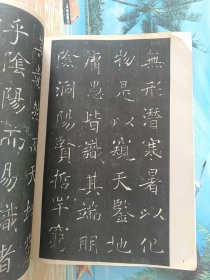 無形潛寒暑以化
物是以窺天鑒地
庸愚皆識其端明
陰洞陽賢哲罕窮
乎陰陽而易識者